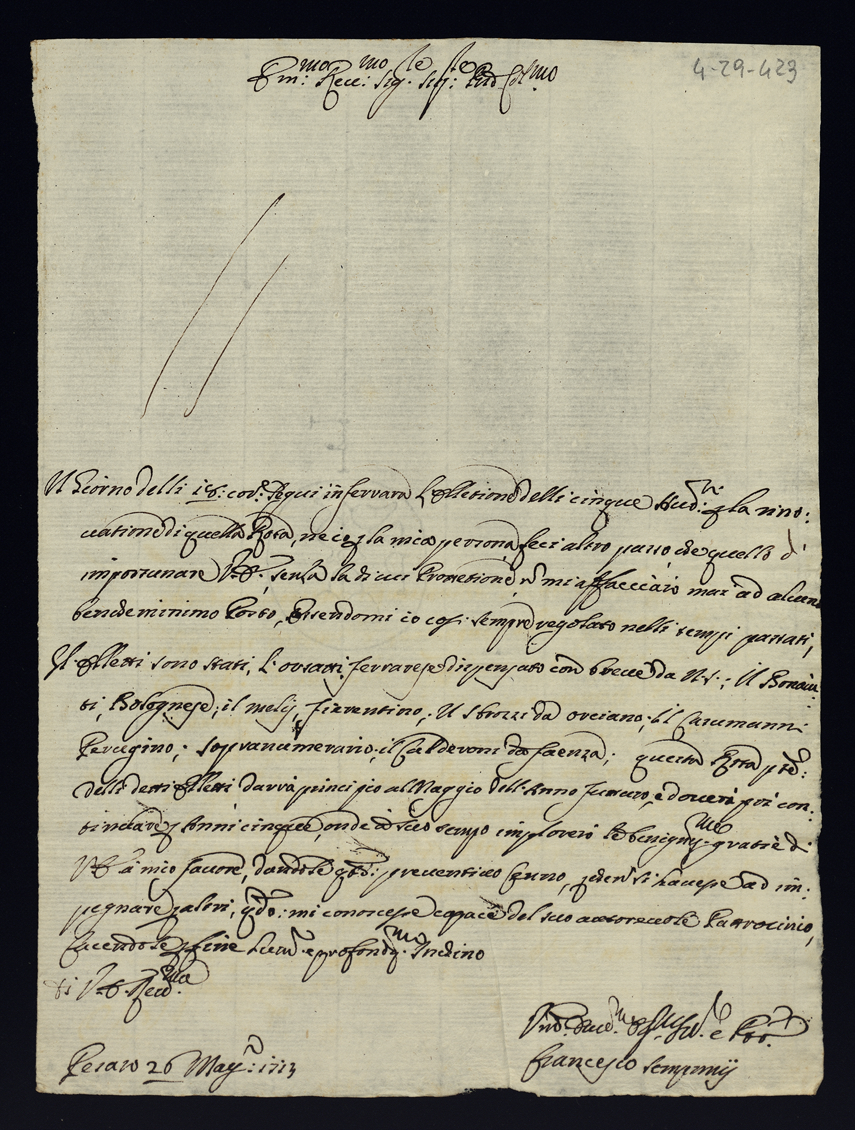 4-29-423
Em:mo Rev:mo Sig.re Sig:re Pad Col:mo
Il Giorno delli 18: cor.e seguì in Ferrara l'Elletione delli cinque Aud:ri p la rino:
uatione di quella Rota, ne io p la mia persona feci altro passo che quello d'
importunare V.E., senza la di cui Protetione, n mi affacciarò mai ad alcun
benche minimo Posto, essendomi io così sempre regolato nelli tempi passati,
Gl'Elletti sono stati, l'Orsatti Ferrarese dispensato con breve da N.S.; il Bonain
ti, Bolognese; il melij, Fiorentino, il Sbrozzi da Orciano; il
Perugino; sopranumerario, il Calderoni da Faenza; questa Rota
delli detti Elletti darrà principio al Maggio dell'Anno futturo, e doverà poi con:
tinuare p Anni cinque, onde à suo tempo implorerò le benignis:me gratie di
V.E. à mio favore, dandole preventivo Cenno, non si havesse ad im:
pegnare p altri, q.do: mi conoscesse capace del suo autorevole Patrocinio,
facendole p fine hum.e e profondis:mo Inchino
di V.E. Rev.ma
Pesaro 26 Mag.o: 1713
e
Francesco Sempronij